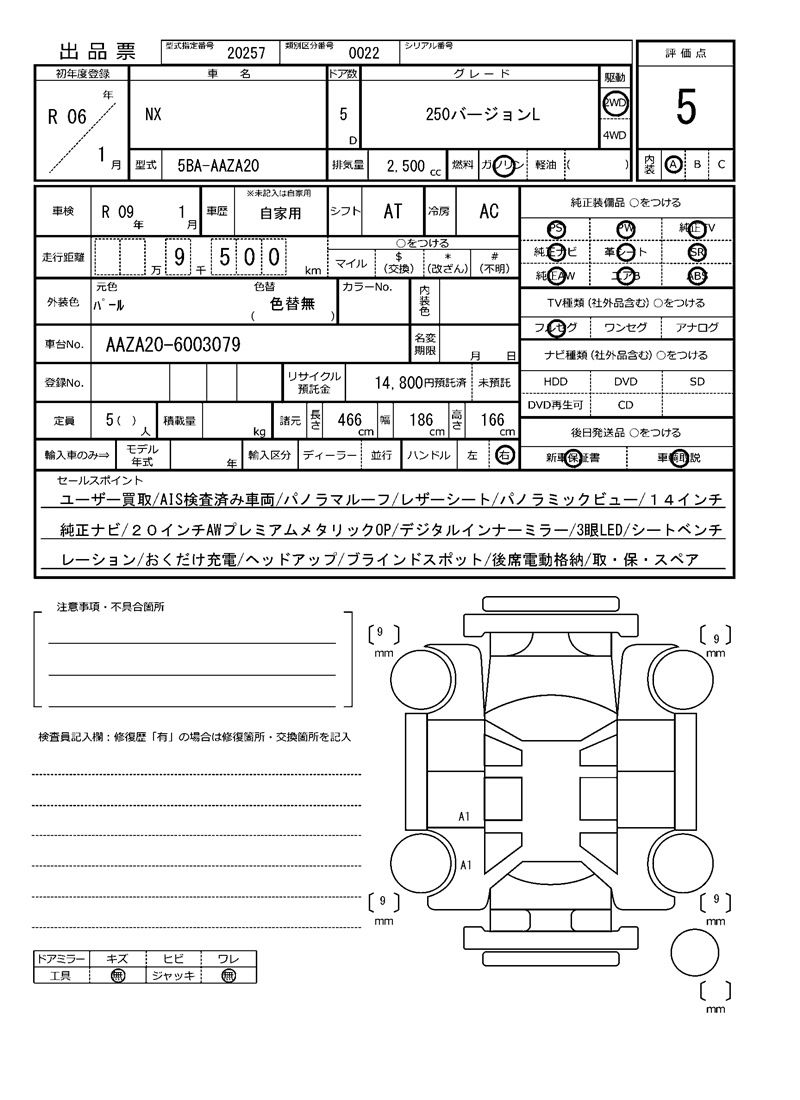 出品票 型式指定番号 20257 類別区分番号 0022 シリアル番号
評価点
5
内装 A B C
初年度登録 車名 ドア数 グレード 駆動
R 06 年 1 月 NX 5 D 250バージョンL 2WD 4WD
型式 5BA-AAZA20 排気量 2,500 cc 燃料 ガソリン 軽油 ( )
車検 R 09 年 1 月 車歴 ※未記入は自家用 自家用 シフト AT 冷房 AC
走行距離 万 9 千 5 0 0 km ○をつける
マイル $ (交換) * (改ざん) # (不明)
外装色 元色 パール 色替 色替無 ( ) カラーNo. 内装色
車台No. AAZA20-6003079 名変期限 月 日
登録No. リサイクル預託金 14,800円預託済 未預託
定員 5 ( ) 人 積載量 kg 諸元 長さ 466 cm 幅 186 cm 高さ 166 cm
輸入車のみ⇒ モデル年式 年 輸入区分 ディーラー 並行 ハンドル 左 右
純正装備品 ○をつける
PS PW 純正TV
純正ナビ 革シート SR
純正AW エアB ABS
TV種類 (社外品含む) ○をつける
フルセグ ワンセグ アナログ
ナビ種類 (社外品含む) ○をつける
HDD DVD SD
DVD再生可 CD
後日発送品 ○をつける
新車保証書 車輌取説
セールスポイント
ユーザー買取/AIS検査済み車両/パノラマルーフ/レザーシート/パノラミックビュー/１４インチ
純正ナビ/２０インチAWプレミアムメタリックOP/デジタルインナーミラー/3眼LED/シートベンチ
レーション/おくだけ充電/ヘッドアップ/ブラインドスポット/後席電動格納/取・保・スペア
注意事項・不具合箇所
検査員記入欄：修復歴「有」の場合は修復箇所・交換箇所を記入
ドアミラー キズ ヒビ ワレ
工具 無 ジャッキ 無
9 mm
9 mm
A1
A1
9 mm
9 mm
mm